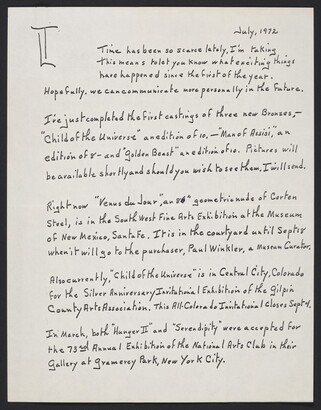 July, 1972
Time has been so scarce lately, I'm taking
this means to let you know what exciting things
have happened since the first of the year.
Hopefully, we can communicate more personally in the future.
I've just completed the first castings of three new Bronzes,-
"Child of the Universe" an edition of 10, -"Man of Assisi", an
edition of 8 - and "Golden Beast" an edition of 10. Pictures will
be available shortly and should you wish to see them, I will send.
Right now "Venus du Jour", an geometric nude of Corten
Steel, is in the SouthWest Fine Arts Exhibition at the Museum
of New Mexico, Santa Fe. It is in the courtyard until Sept 8
when it will go to the purchaser, Paul Winkler, a Museum Curator.
Also currently, "Child of the Universe" is in Central City, Colorado
for the Silver Anniversary Invitational Exhibition of the Gilpin
County Arts Association. This All-Colorado Invitational closes Sept 4.
In March, both "Hunger II" and "Serendipity" were accepted for
the 73rd Annual Exhibition of the National Arts Club in their
Gallery at Gramercy Park, New York City.